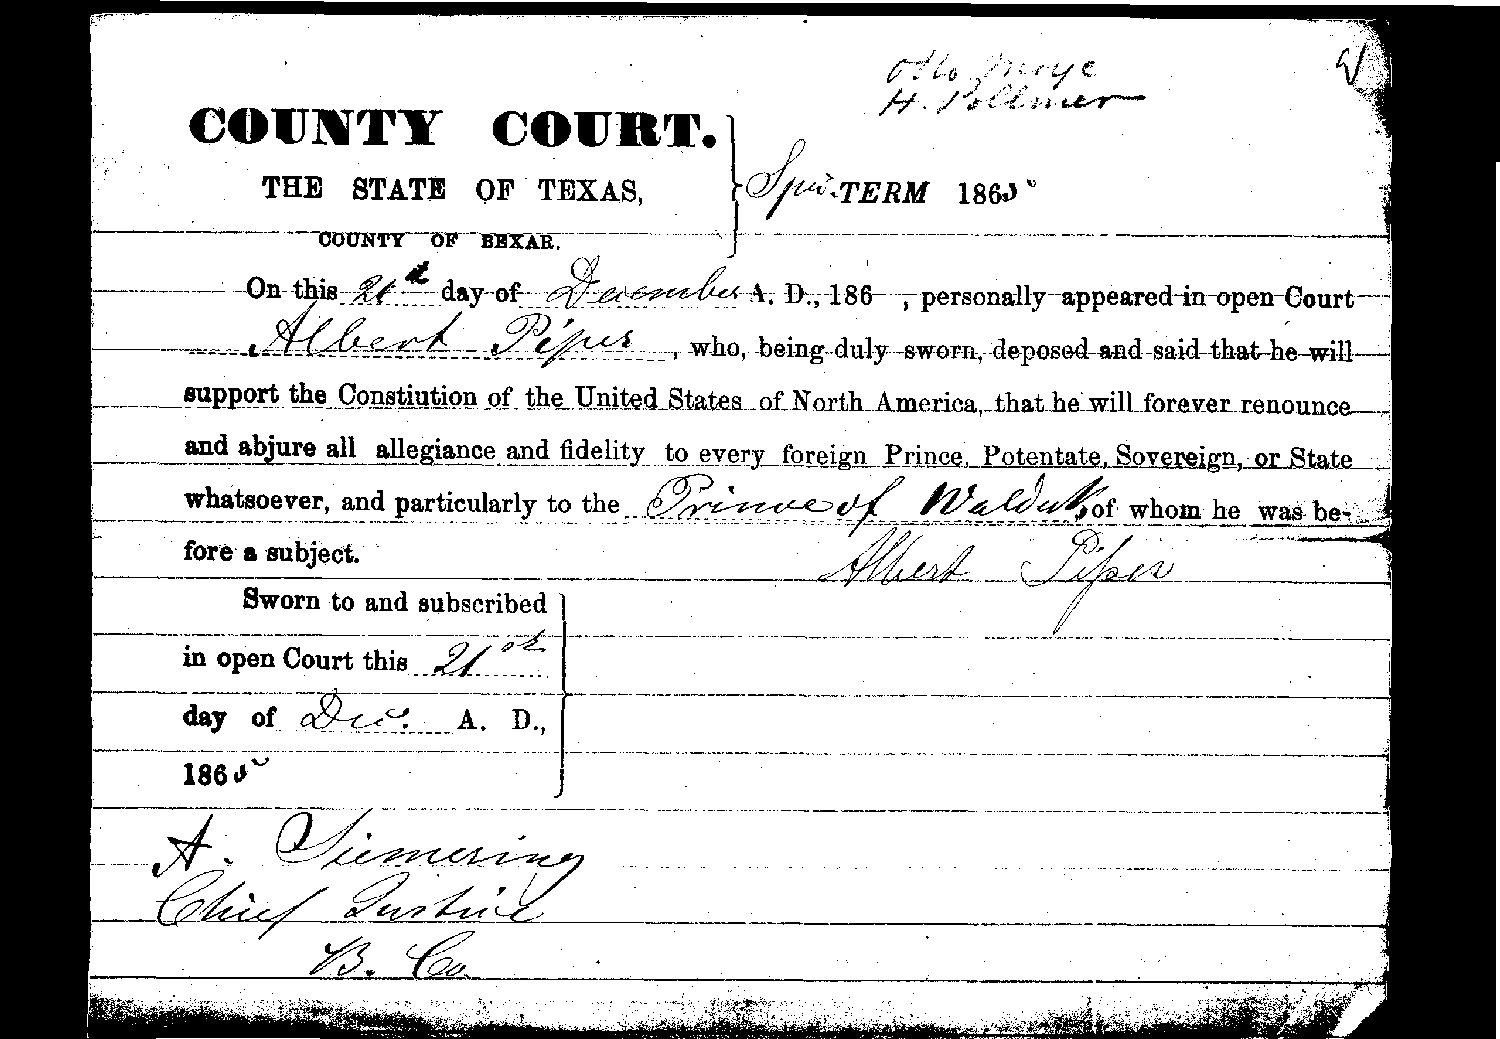 Otto Moye
H. Pollmer
COUNTY COURT.
THE STATE OF TEXAS,
COUNTY OF BEXAR.
Spec. TERM 1865
On this 21st day of December A. D., 186 , personally appeared in open Court
Albert Piper , who, being duly sworn, deposed and said that he will
support the Constiution of the United States of North America, that he will forever renounce
and abjure all allegiance and fidelity to every foreign Prince, Potentate, Sovereign, or State
whatsoever, and particularly to the Prince of Waldek, of whom he was be-
fore a subject.
Albert Piper
Sworn to and subscribed
in open Court this 21st
day of Dec. A. D.,
1865
A. Siemering
Chief Justice
B. Co.